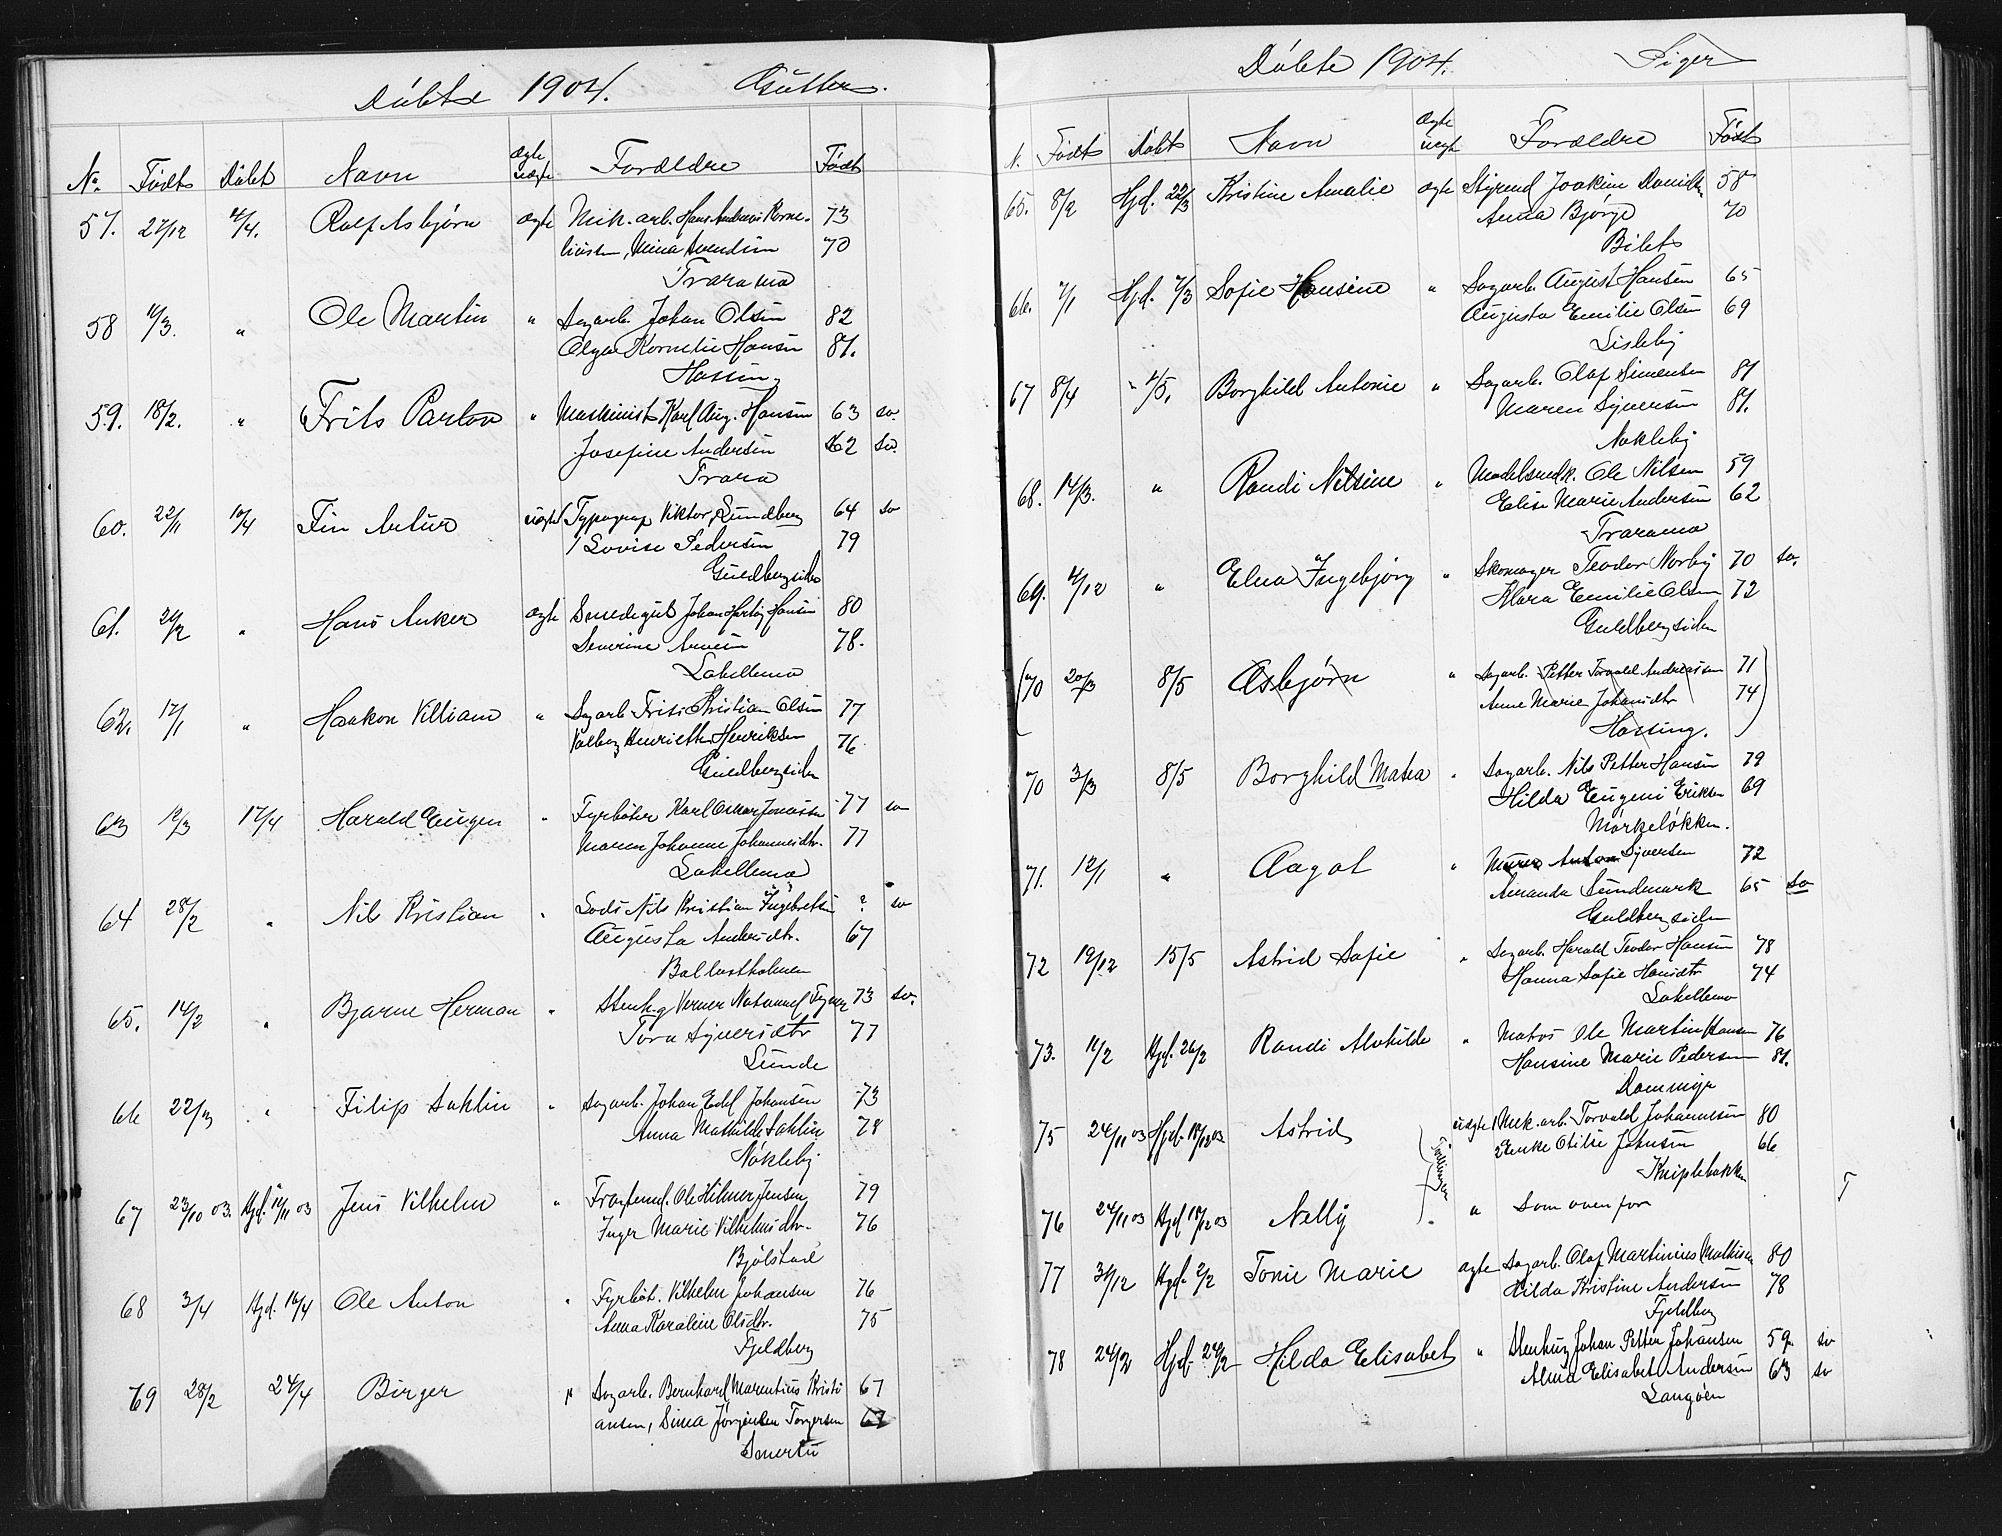 Døbte 1904. Gutter.
No. Født Døbt Navn ægte uægte Forældre Født
57. 27/12 4/4. Rolf Asbjørn ægte Mek. arb. Hans Andreas Korne- 73
liusen, Mina Svendsen 70
Trara
58 11/3. " Ole Martin " Sagarb. Johan Olsen 82
Olga Kornelie Hansen 81.
Hassing
59. 18/2. " Frits Parlov " Maskinist Karl Aug. Hansen 63 sv.
Josefine Andersen 62 sv.
Trara
60. 22/11 10/4 Fin Artur uægte Typograf Viktor Rundberg 64 sv
Lovise Pedersen 79
Guldbergsiden
61. 20/2 " Hans Anker ægte Johan Hansen 80
Severine 78.
Labellemo
62. 17/1 " Haakon Villiam " Sagarb Frits Kristian Olsen 77
Valborg Henriette Henriksen 76
Guldbergsiden
63 12/3 17/4 Harald Eugen " Fyrbøter Karl Oskar Jonassen 77 sv
Maren Johanne Johannesdtr. 77
Labellemo
64 28/2 " Nils Kristian " Lods Nils Kristian Ingebretsen ? sv
Augusta Andersdtr. 67
Ballastholmen
65. 14/2 " Bjarne Herman " Stenh.g Verner Natanael 73 sv.
Tora Syversdtr 77
Lunde
66 22/3 " Filip Sahlin " Sagarb. Johan Edel Johansen 73
Anna Mathilde Sahlin 78
Nøkleby
67 23/10 03. Hjd. 11/11 03 Jens Vilhelm " Ole Hilmer Jensen 79
Inger Marie Vilhelmsdtr. 76
Bjølstad
68 3/4 Hjd. 16/4 Ole Anton " Fyrbøt. Vilhelm Johansen 76
Anna Karoline Olsdtr. 75
Fjeldberg
69 28/2 24/4 Birger " Sagarb. Bernhard Marentius Kristi 67
ansen, Sina Jørgensen Torgersen 67
Smertu
Døbte 1904. Piger
N. Født Døbt Navn ægte uegt Forældre Født
65. 8/2 Hjd. 22/3 Kristine Amalie ægte Styrmd Joakim Danielsen 58
Anna Bjørge 70
Bilet
66. 7/1 Hjd. 7/3 Sofie Hansine " Sagarb. August Hansen 65
Augusta Emilie Olsen 69
Lisleby
67 8/4 " 1/5. Borghild Antonie " Sagarb. Olaf Simensen 81
Maren Syversen 81.
Nøkleby
68. 14/3. " Randi Nilsine " Modelsnedk. Ole Nilsen 59
Elise Marie Andersen 62
Trara
69. 4/12 " Elna Ingebjørg " Skomager Teodor Norby 70 sv.
Klara Emilie Olsen 72
Guldbergsiden
(70 20/3 8/5 Asbjørn " Sagarb. Petter Torvald Andreassen 71)
Anne Marie Johansdtr 74
Hassing.
70 3/3 8/5 Borghild Matea " Sagarb. Nils Petter Hansen 79
Hilda Eugeni Eriksen 69
Mørkeløkken.
71. 12/1 " Aagot " Murer Anton Syversen 72
Amanda Sundmark 65 sv
Guldbergsiden
72 19/12 15/5 Astrid Sofie " Sagarb. Harald Teodor Hansen 78
Hanna Sofie Hansdtr 74
Labellemo
73. 11/2 Hjd. 26/2 Randi Alvhilde " Matros Ole Martin Hansen 76
Hansine Marie Pedersen 81.
Damminge
75 24/11 03 Hjd. 18/12 03 Astrid uægte Mek. arb. Torvald Johannesen 80
Enke Otilie Johnsen 66
Kniplebakken
Tvillinger
76 24/11 03 Hjd 18/12 03 Nelly " " Som ovenfor T
77 31/12 Hjd. 2/2 Tonie Marie ægte Sagarb. Olaf Martinius Mathisen 80
Hilda Kristine Andersen 78
Fjeldberg
78 24/2 Hjd. 24/2 Hilda Elisabet " Stenhug Johan Petter Johansen 59. sv
Alma Elisabet Andersen 63 sv
Langøen